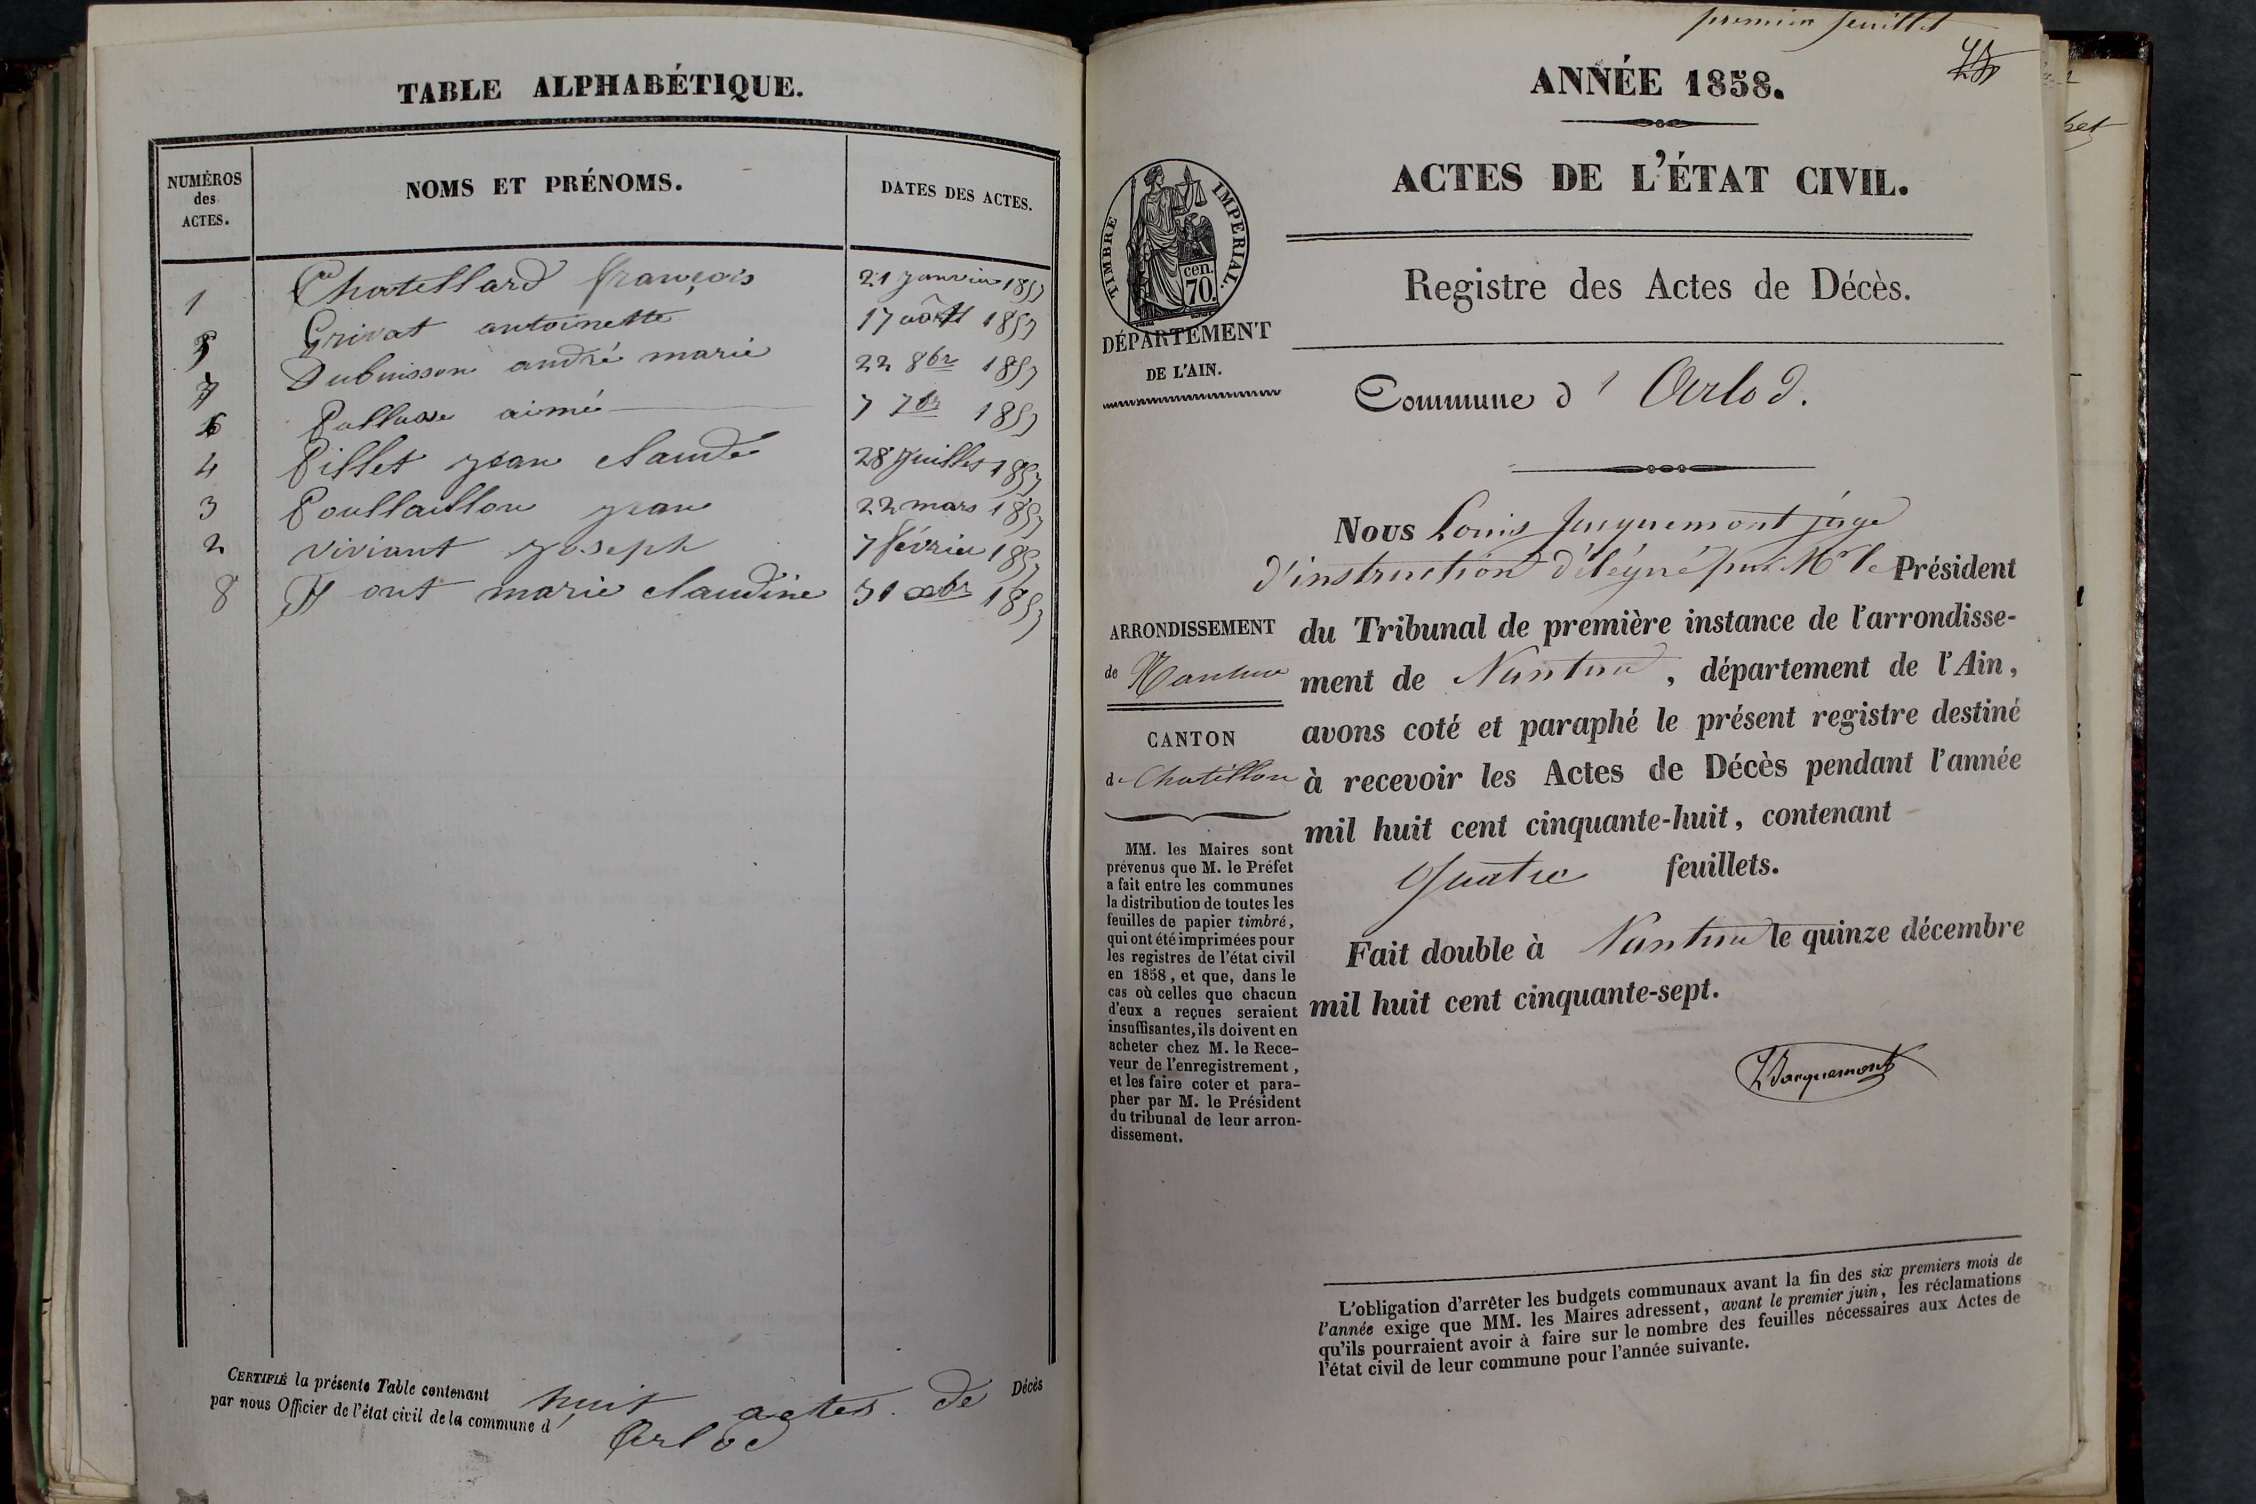 TABLE ALPHABÉTIQUE.
NUMÉROS des ACTES.
NOMS ET PRÉNOMS.
DATES DES ACTES.
1 Chatellard françois 21 Janvier 1857
5 Grivat antoinette 17 août 1857
7 Dubuisson andré marie 22 8bre 1857
6 aimé 7 7bre 1857
4 Pillet jean claude 28 Juillet 1857
3 Poullaillon jean 22 mars 1857
2 viviant joseph 7 février 1857
8 marie claudine 31 xbre 1857
CERTIFIÉ la présente Table contenant huit actes de Décès
par nous Officier de l'état civil de la commune d' Arlod
premier feuillet
ANNÉE 1858.
ACTES DE L'ÉTAT CIVIL.
TIMBRE IMPERIAL.
cen.
70.
DÉPARTEMENT
DE L'AIN.
Registre des Actes de Décès.
Commune d' Arlod.
Nous Louis Jacquemont juge
d'instruction délégué par Mr le Président
du Tribunal de première instance de l'arrondisse-
ment de Nantua, département de l'Ain,
avons coté et paraphé le présent registre destiné
à recevoir les Actes de Décès pendant l'année
mil huit cent cinquante-huit, contenant
Quatre feuillets.
Fait double à Nantua le quinze décembre
mil huit cent cinquante-sept.
LJacquemont
ARRONDISSEMENT
de Nantua
CANTON
de Chatillon
MM. les Maires sont
prévenus que M. le Préfet
a fait entre les communes
la distribution de toutes les
feuilles de papier timbré,
qui ont été imprimées pour
les registres de l'état civil
en 1858, et que, dans le
cas où celles que chacun
d'eux a reçues seraient
insuffisantes, ils doivent en
acheter chez M. le Rece-
veur de l'enregistrement,
et les faire coter et para-
pher par M. le Président
du tribunal de leur arron-
dissement.
L'obligation d'arrêter les budgets communaux avant la fin des six premiers mois de
l'année exige que MM. les Maires adressent, avant le premier juin, les réclamations
qu'ils pourraient avoir à faire sur le nombre des feuilles nécessaires aux Actes de
l'état civil de leur commune pour l'année suivante.